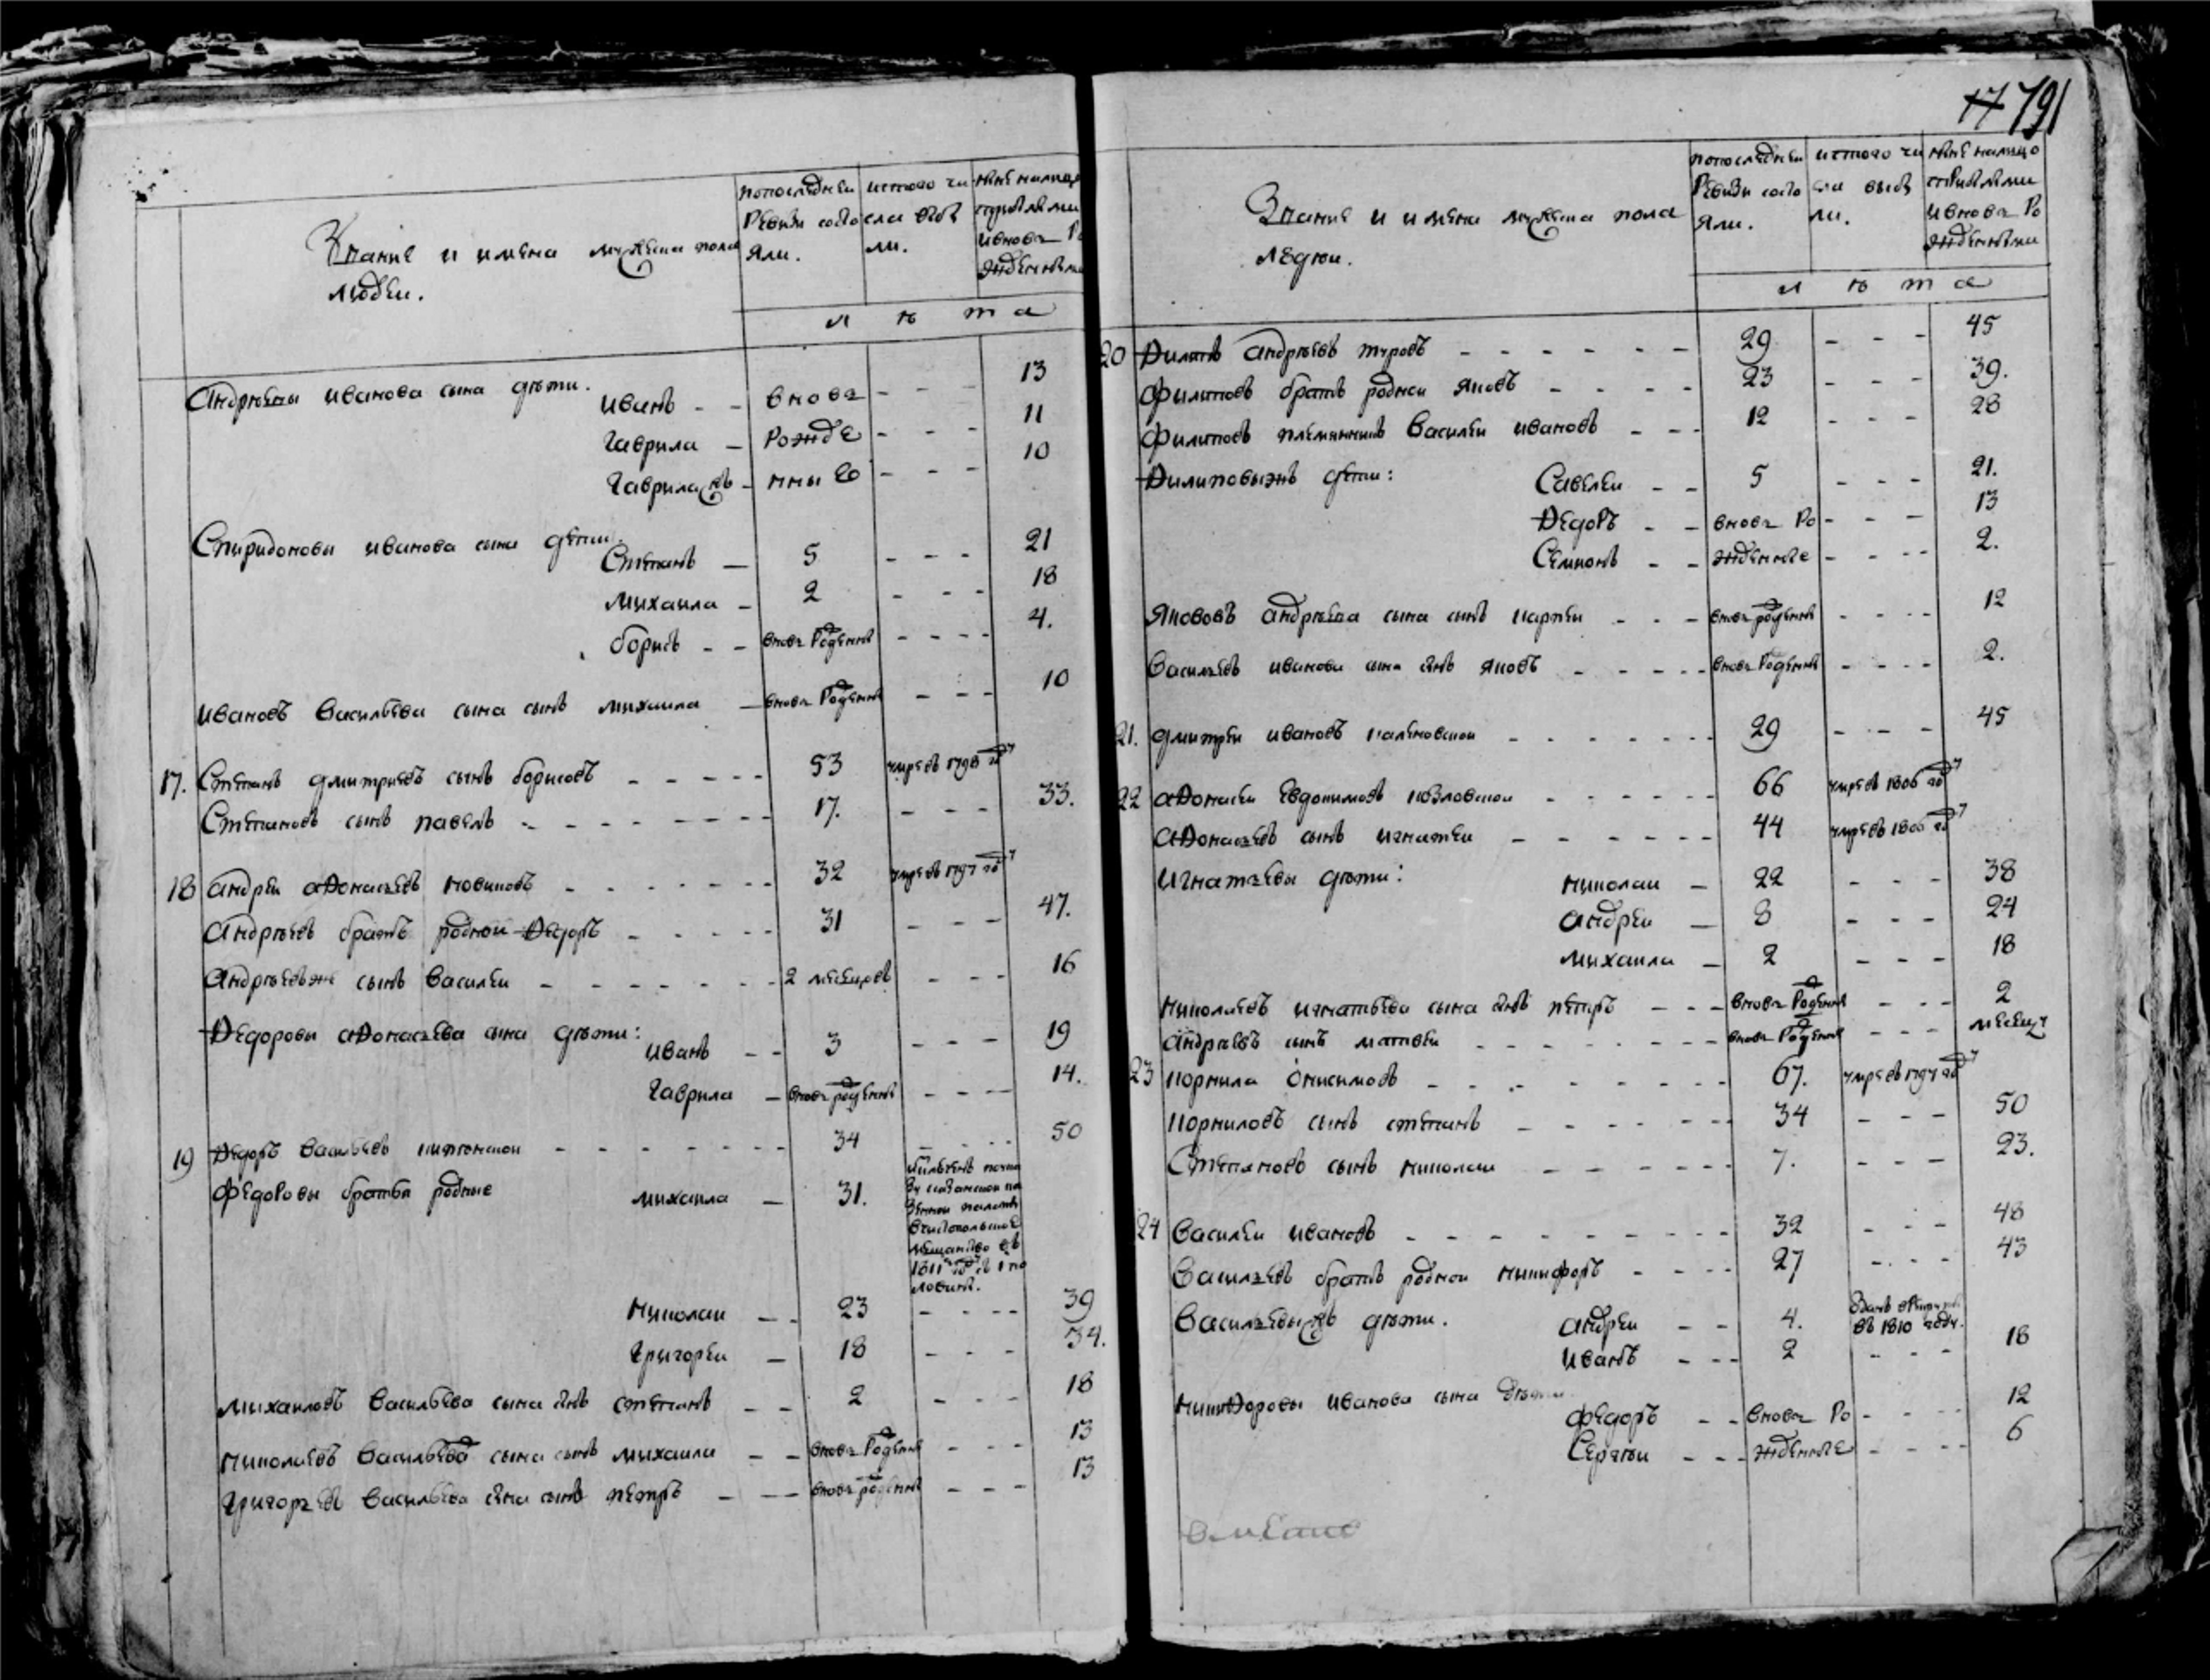 Звание и имена мужеска пола
людеи.
попоследнеи
Ревизи состо
яли.
истого чи
сла выбы
ли.
ныне налицо
ивновь Ро
л ѣ т а
Андрѣевы иванова сына дѣти.
иванъ - - вновь - - - 13
Гаврила - Рожде - - - 11
Гаврила жъ - нныЕ - - - 10
Спиридоновы иванова сына дѣти.
Степанъ — 5 - - - 21
михаила - 2 - - - 18
борисъ - - вновь Рожденныи - - - - 4.
ивановъ васильева сына сынъ михаила — вновь Рожденныи - - - 10
17. Степанъ дмитриевъ сынъ борисовъ - - - - - 53 умре въ 1798 году
Степановъ сынъ павелъ - - - - - - - - 17. - - - 33.
18 андреи афонасьевъ новиковъ - - - - - - - 32 умре въ 1797 году
Андрѣевъ братъ роднои Федоръ - - - - - 31 - - - 47.
Андрѣевъже сынъ василеи - - - - - - - 2 месецовъ - - - 16
Федоровы афонасьева сына дѣти:
иванъ - - 3 - - - 19
Гаврила — вновь рожденныи - - - - 14.
19 Федоръ васильевъ - - - - - - - - 34 - - - - 50
Федоровы братья родные
михаила — 31.
мещанство въ
1811 году
николаи — - 23 - - - - 39
григореи — 18 - - - 34.
михаиловъ васильева сына сынъ степанъ - - 2 - - - 18
николаевъ васильева сына сынъ михаила - - вновь Рожденныи - - - 13
григорьевъ васильева сына сынъ петръ - — вновь рожденныи - - - 13
17 791
Звание и имена мужеска пола
людеи.
попоследнеи
Ревизи состо
яли.
истого чи
сла выбы
ли.
ныне налицо
ивновь Ро
жденными
л ѣ т а
20 Филипъ андрѣевъ туровъ - - - - - - 29 - - - 45
филиповъ братъ роднои яковъ - - - - 23 - - - 39.
филиповъ племянникъ василеи ивановъ - - - 12 - - - 28
Филиповыжъ дети:
Савелеи - - 5 - - - 21.
Федоръ - - вновь Ро - - - 13
Семионъ - - жденные - - - - 2.
якововъ андрѣева сына сынъ карпеи - - - вновь рожденныи - - - - 12
васильевъ иванова сына сынъ яковъ - - - - - вновь Рожденныи - - - - 2.
21. дмитреи ивановъ - - - - - - - 29 - - - 45
22 афонасеи Евдокимовъ козловскои - - - - - - 66 умре въ 1806 году
афонасьевъ сынъ игнатеи - - - - - - 44 умре въ 1806 году
игнатьевы дѣти:
николаи — 22 - - - 38
андреи — 8 - - - 24
михаила — 2 - - - 18
николаевъ игнатьева сына сынъ петръ - - - вновь Рожденныи - - - 2
андреевъ сынъ матвеи - - - - - - - - вновь Рожденныи - - - месецу
23 корнила онисимовъ - - - - - - - - 67. умре въ 1797 году
корниловъ сынъ степанъ - - - - - - 34 - - - 50
Степановъ сынъ николаи - - - - - - 7. - - - 23.
24 василеи ивановъ - - - - - - - - - 32 - - - 48
васильевъ братъ роднои никифоръ - - - - 27 - - - - 43
васильевыжъ дѣти.
андреи - - 4. въ 1810 году.
иванъ - - - 2 - - - 18
никифоровы иванова сына дѣти
федоръ - - вновь Ро - - - - 12
Сергеи - - - жденные - - - - 6